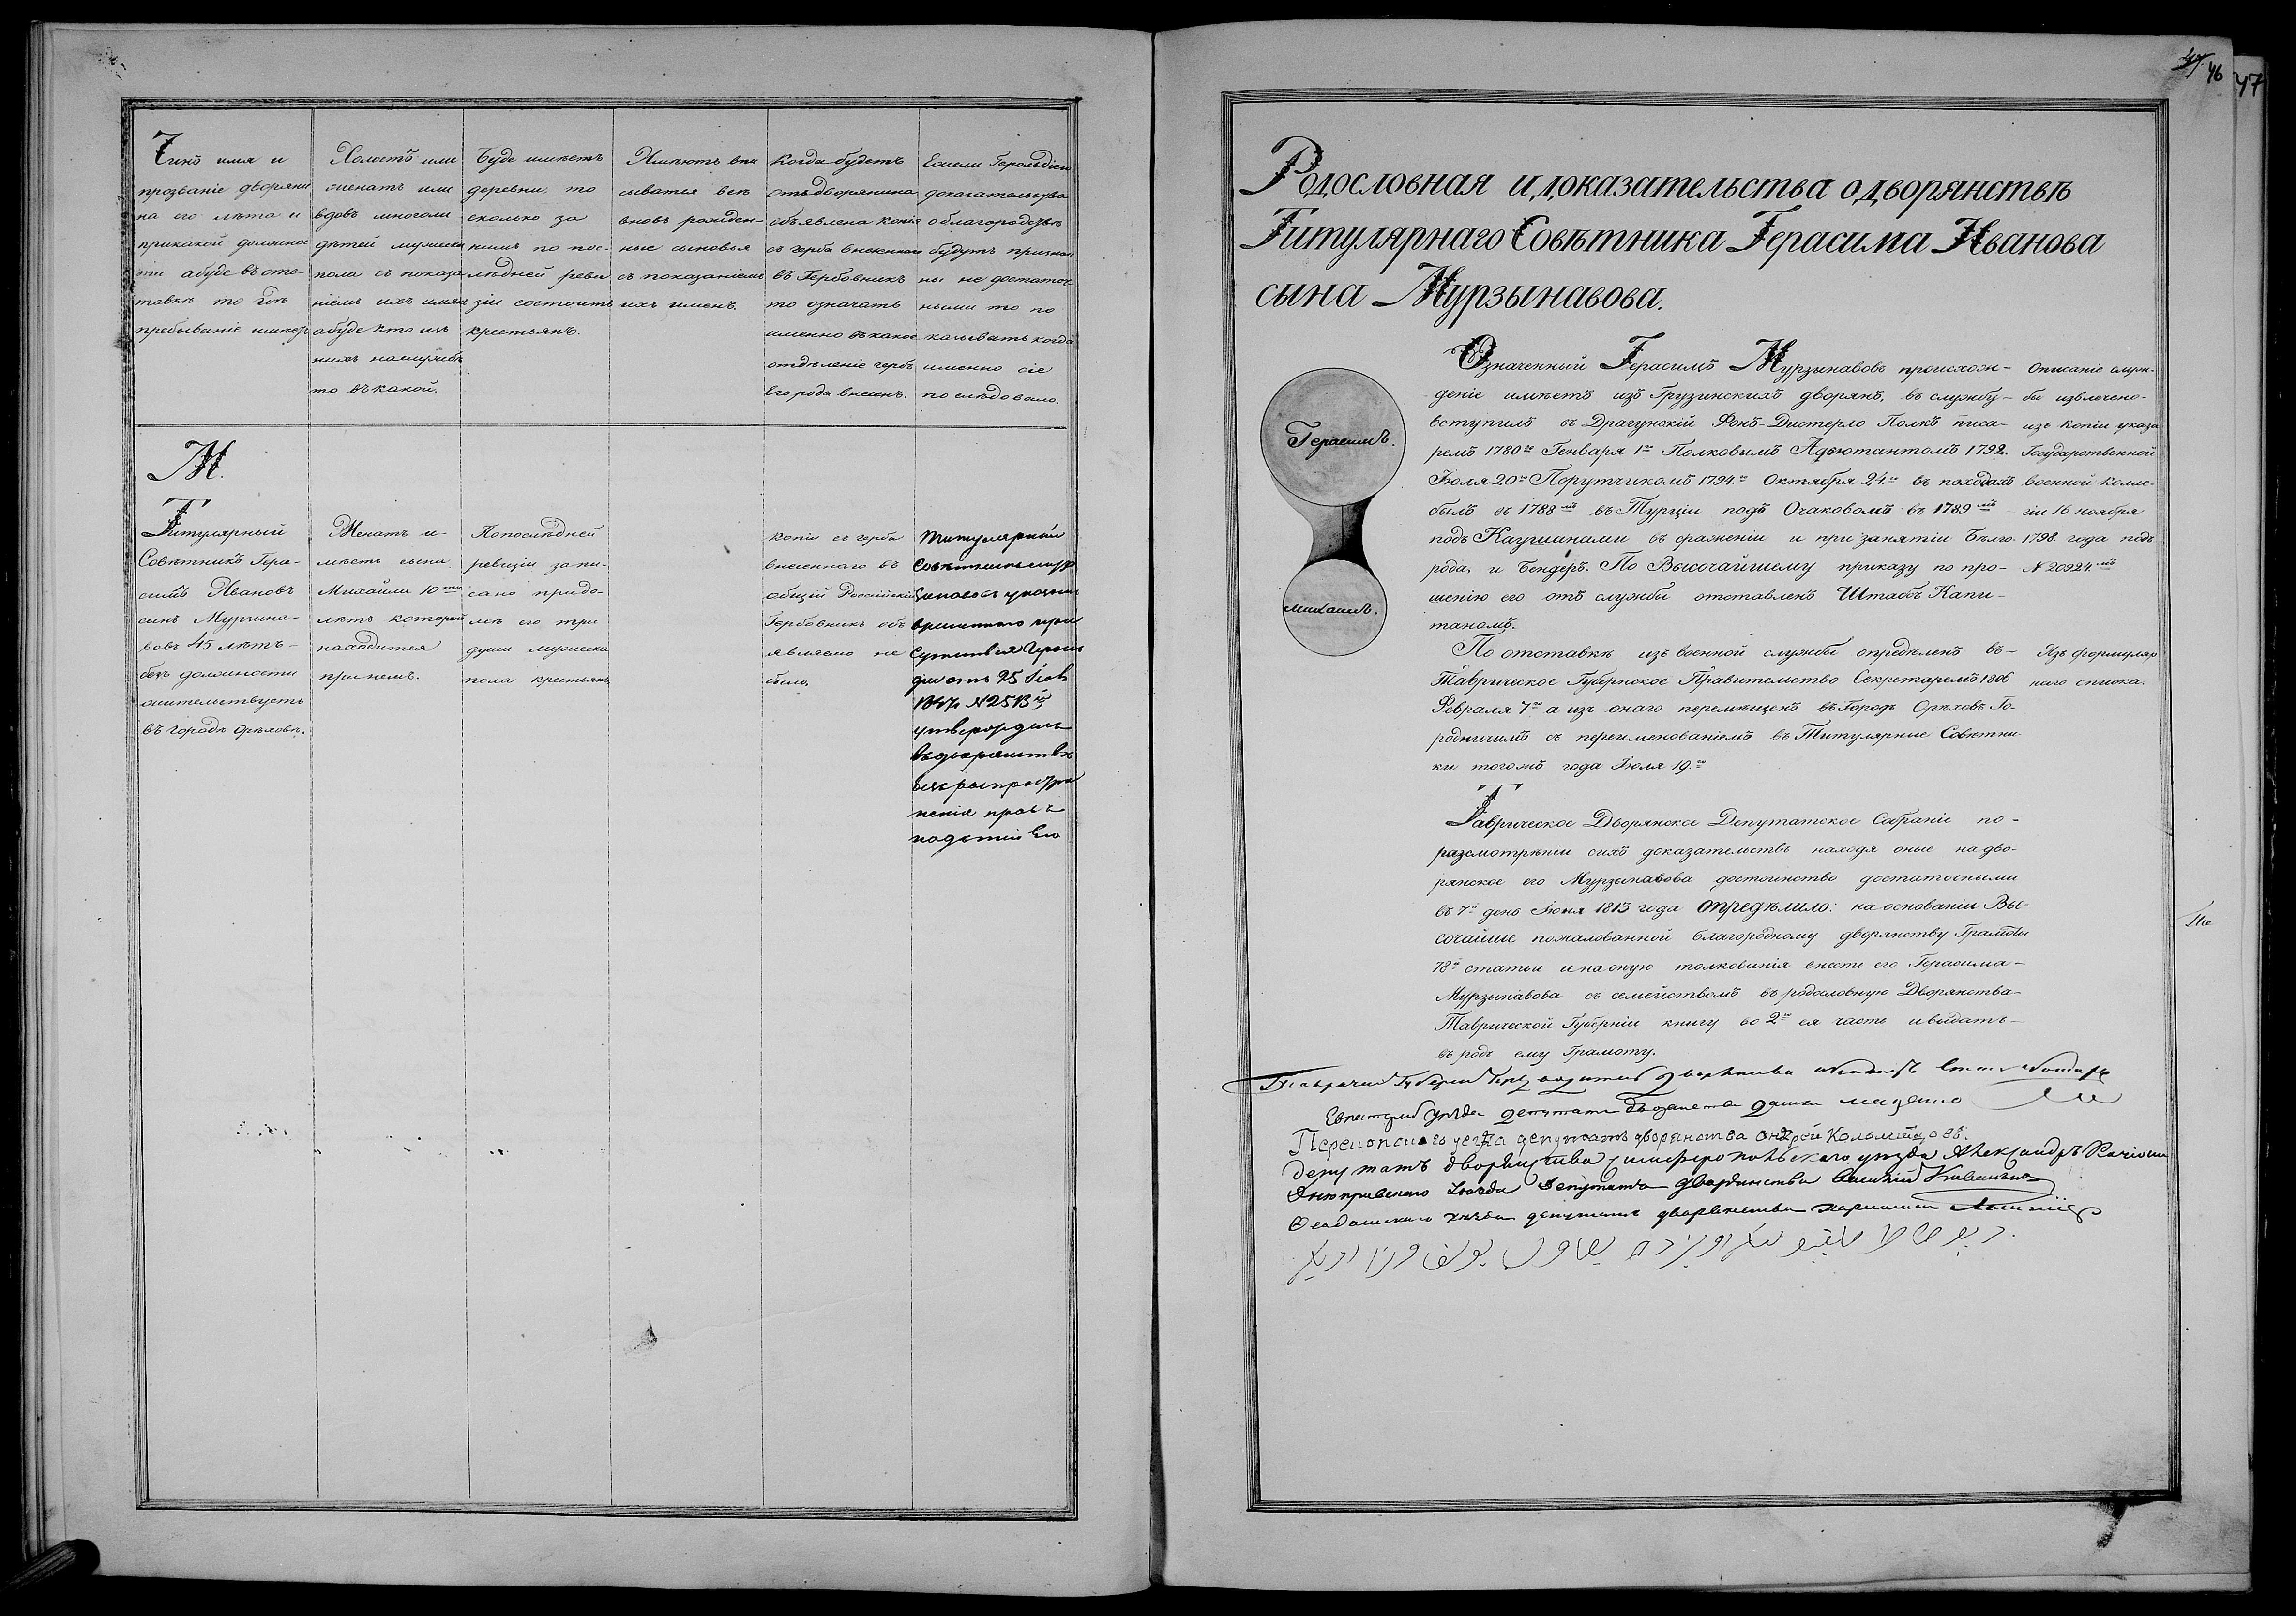 Чинъ имя и
прозваніе дворяни
на его лѣта и
прикакой должно
сти абуде въ отс-
тавкѣ то гдѣ
пребываніе имѣетъ
Холостъ или
женатъ или
вдовъ многоли
дѣтей мужеска
пола съ показа
ніемъ ихъ имян
абуде кто изъ
нихъ наслужбѣ
то въкакой.
Буде имѣетъ
деревни, то
сколько за
нимъ по пос-
лѣдней реви
зіи состоитъ
крестьянъ.
Имѣютъ впи
сыватся всѣ
вновь рожден-
ные сыновья
съ показаніемъ
ихъ именъ.
Когда будетъ
отъдворянина
объявлена копія
съ герба внесеннаго
въ Гербовникъ
то означать
именно въкакое
отдѣленіе гербъ
Его рода внесенъ.
Ежели Герольдіею
доказательства
облагородствѣ
будутъ признан
ны не достаточ
ными то по
казывать когда
именно сіе
послѣдовало.
М.
Титулярный
Совѣтникъ Гера-
симъ Ивановъ
сынъ Мурзина-
вовъ 45 лѣтъ-
безъ должности
жительствуетъ
въ городѣ Орѣховѣ.
Женатъ и-
мѣетъ сына
Михайла 10
лѣтъ которой
находится
при немъ.
Попослѣдней
ревизіи запи-
сано придо-
мѣ его три
души мужеска
пола крестьянъ
Копіи съ герба
внесеннаго въ
Общій Россійскій
Гербовникъ объ
являемо не
было.
Титулярный
Совѣтникъ Мур
зинавовъ указомъ
временнаго при
сутствія Героль
діи отъ 25
№ 2513
утвержденъ
въдворянствѣ
безъ распростра
ненія правъ
надѣтей его
47 46 47
Родословная и доказательства о дворянствѣ
Титулярнаго Совѣтника Герасима Иванова
сына Мурзынавова.
Герасимъ.
Михаилъ.
Означенный Герасимъ Мурзынавовъ происхож-
деніе имѣетъ изъ Грузинскихъ дворянъ, въ службу-
вступилъ въ Драгунскій Фонъ-Дистерло Полкъ писа-
ремъ 1780го Генваря 1го Полковымъ Адъютантомъ 1792.
Іюля 20го Порутчикомъ 1794го Октября 24го въ походахъ
былъ въ 1788мъ въ Турціи подъ Очаковомъ въ 1789мъ
подъ Каушанами въ сраженіи и при занятіи Бѣлго-
рода, и Бендеръ. По Высочайшему приказу по про-
шенію его отъ службы отставленъ Штабъ Капи-
таномъ.
Описаніе служ-
бы извлечено-
изъ копіи указа
Государственной
военной колле-
гіи 16 ноября
1798. года подъ
№ 20924.мъ
По отставкѣ изъ военной службы опредѣленъ въ-
Таврическое Губернское Правительство Секретаремъ 1806
Февраля 7го а изъ онаго перемѣщенъ въ Городъ Орѣховъ Го-
родничимъ съ переименованіемъ въ Титулярные Совѣтни-
ки тогожъ года Іюля 19.го
Изъ формуляр
наго списка.
Таврическое Дворянское Депутатское Собраніе по-
разсмотрѣніи сихъ доказательствъ находя оные на дво-
рянское его Мурзынавова достоинство достаточными
въ 7й день Іюня 1813 года опредѣлило: на основаніи Вы-
сочайше пожалованной благородному дворянству Грамоты
78й статьи инаоную толкованія внесть его Герасима-
Мурзынавова съ семействомъ въ родословную Дворянства-
Таврической Губерніи книгу во 2ю ея часть ивыдать-
въ родъ ему Грамоту.
Перекопскаго уезда депутатъ дворянства Андрей
депутатъ дворянства симферопольского уезда Александръ
Днепровского уезда Депутатъ дворянства Василій
Феодосійскаго уезда депутатъ дворянства